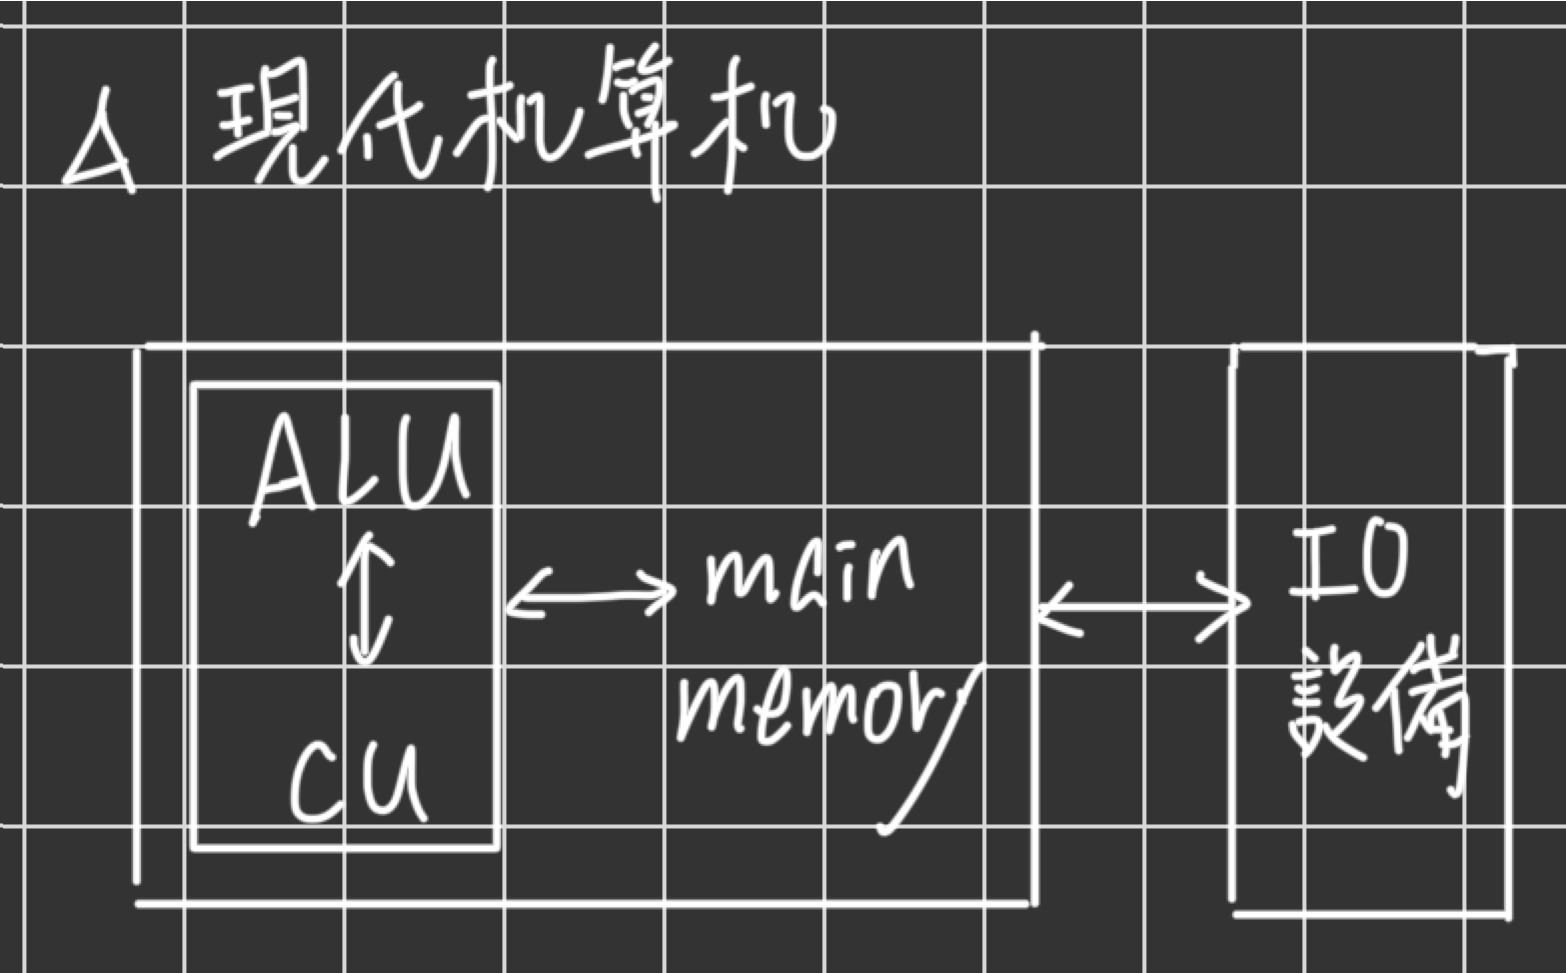 △ 現代机算机
ALU
CU
main
memory
IO
設備